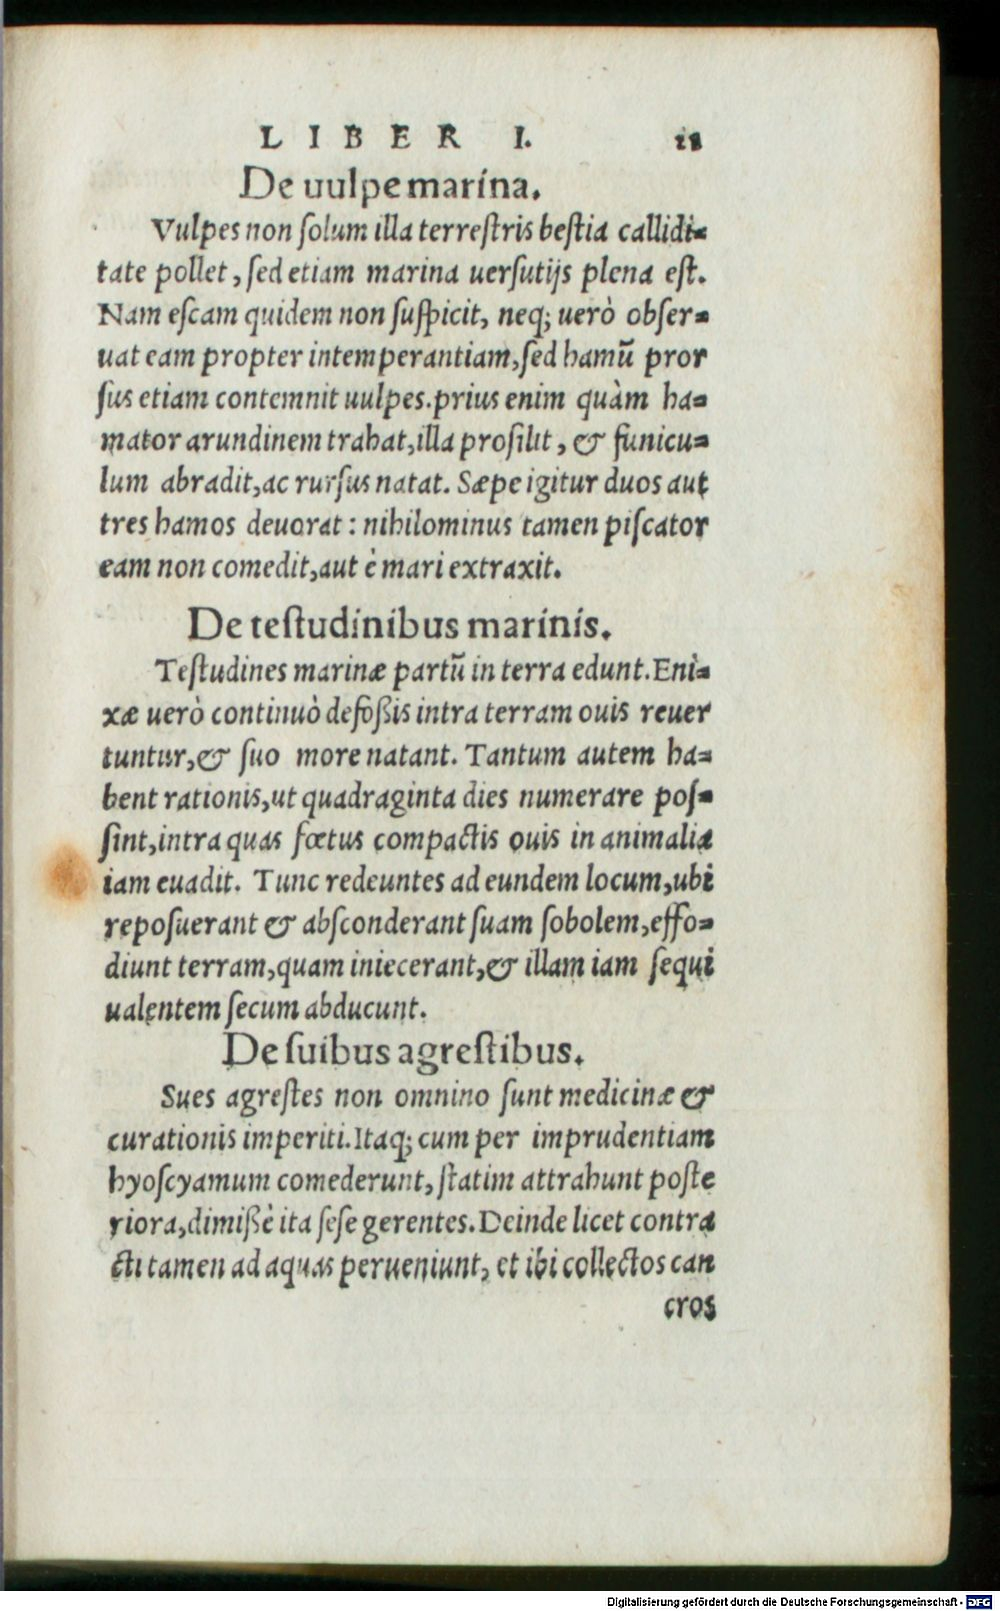 LIBER I. 18
De uulpe marina.
Vulpes non ſolum illa terreſtris beſtia callidi-
tate pollet, ſed etiam marina uerſutijs plena eſt.
Nam eſcam quidem non ſuſpicit, neq; uerò obſer-
uat eam propter intemperantiam, ſed hamũ pror
ſus etiam contemnit uulpes. prius enim quàm ha-
mator arundinem trahat, illa proſilit, & funicu-
lum abradit, ac rurſus natat. Sæpe igitur duos aut
tres hamos deuorat: nihilominus tamen piſcator
eam non comedit, aut è mari extraxit.
De teſtudinibus marinis.
Teſtudines marinæ partũ in terra edunt. Eni-
xæ uerò continuò defoßis intra terram ouis reuer
tuntur, & ſuo more natant. Tantum autem ha-
bent rationis, ut quadraginta dies numerare poſ-
ſint, intra quas fœtus compactis ouis in animalia
iam euadit. Tunc redeuntes ad eundem locum, ubi
repoſuerant & abſconderant ſuam ſobolem, effo-
diunt terram, quam iniecerant, & illam iam ſequi
ualentem ſecum abducunt.
De ſuibus agreſtibus.
Sues agreſtes non omnino ſunt medicinæ &
curationis imperiti. Itaq; cum per imprudentiam
hyoſcyamum comederunt, ſtatim attrahunt poſte
riora, dimißè ita ſeſe gerentes. Deinde licet contra
cti tamen ad aquas perueniunt, et ibi collectos can
cros
Digitalisierung gefördert durch die Deutsche Forschungsgemeinschaft - DFG